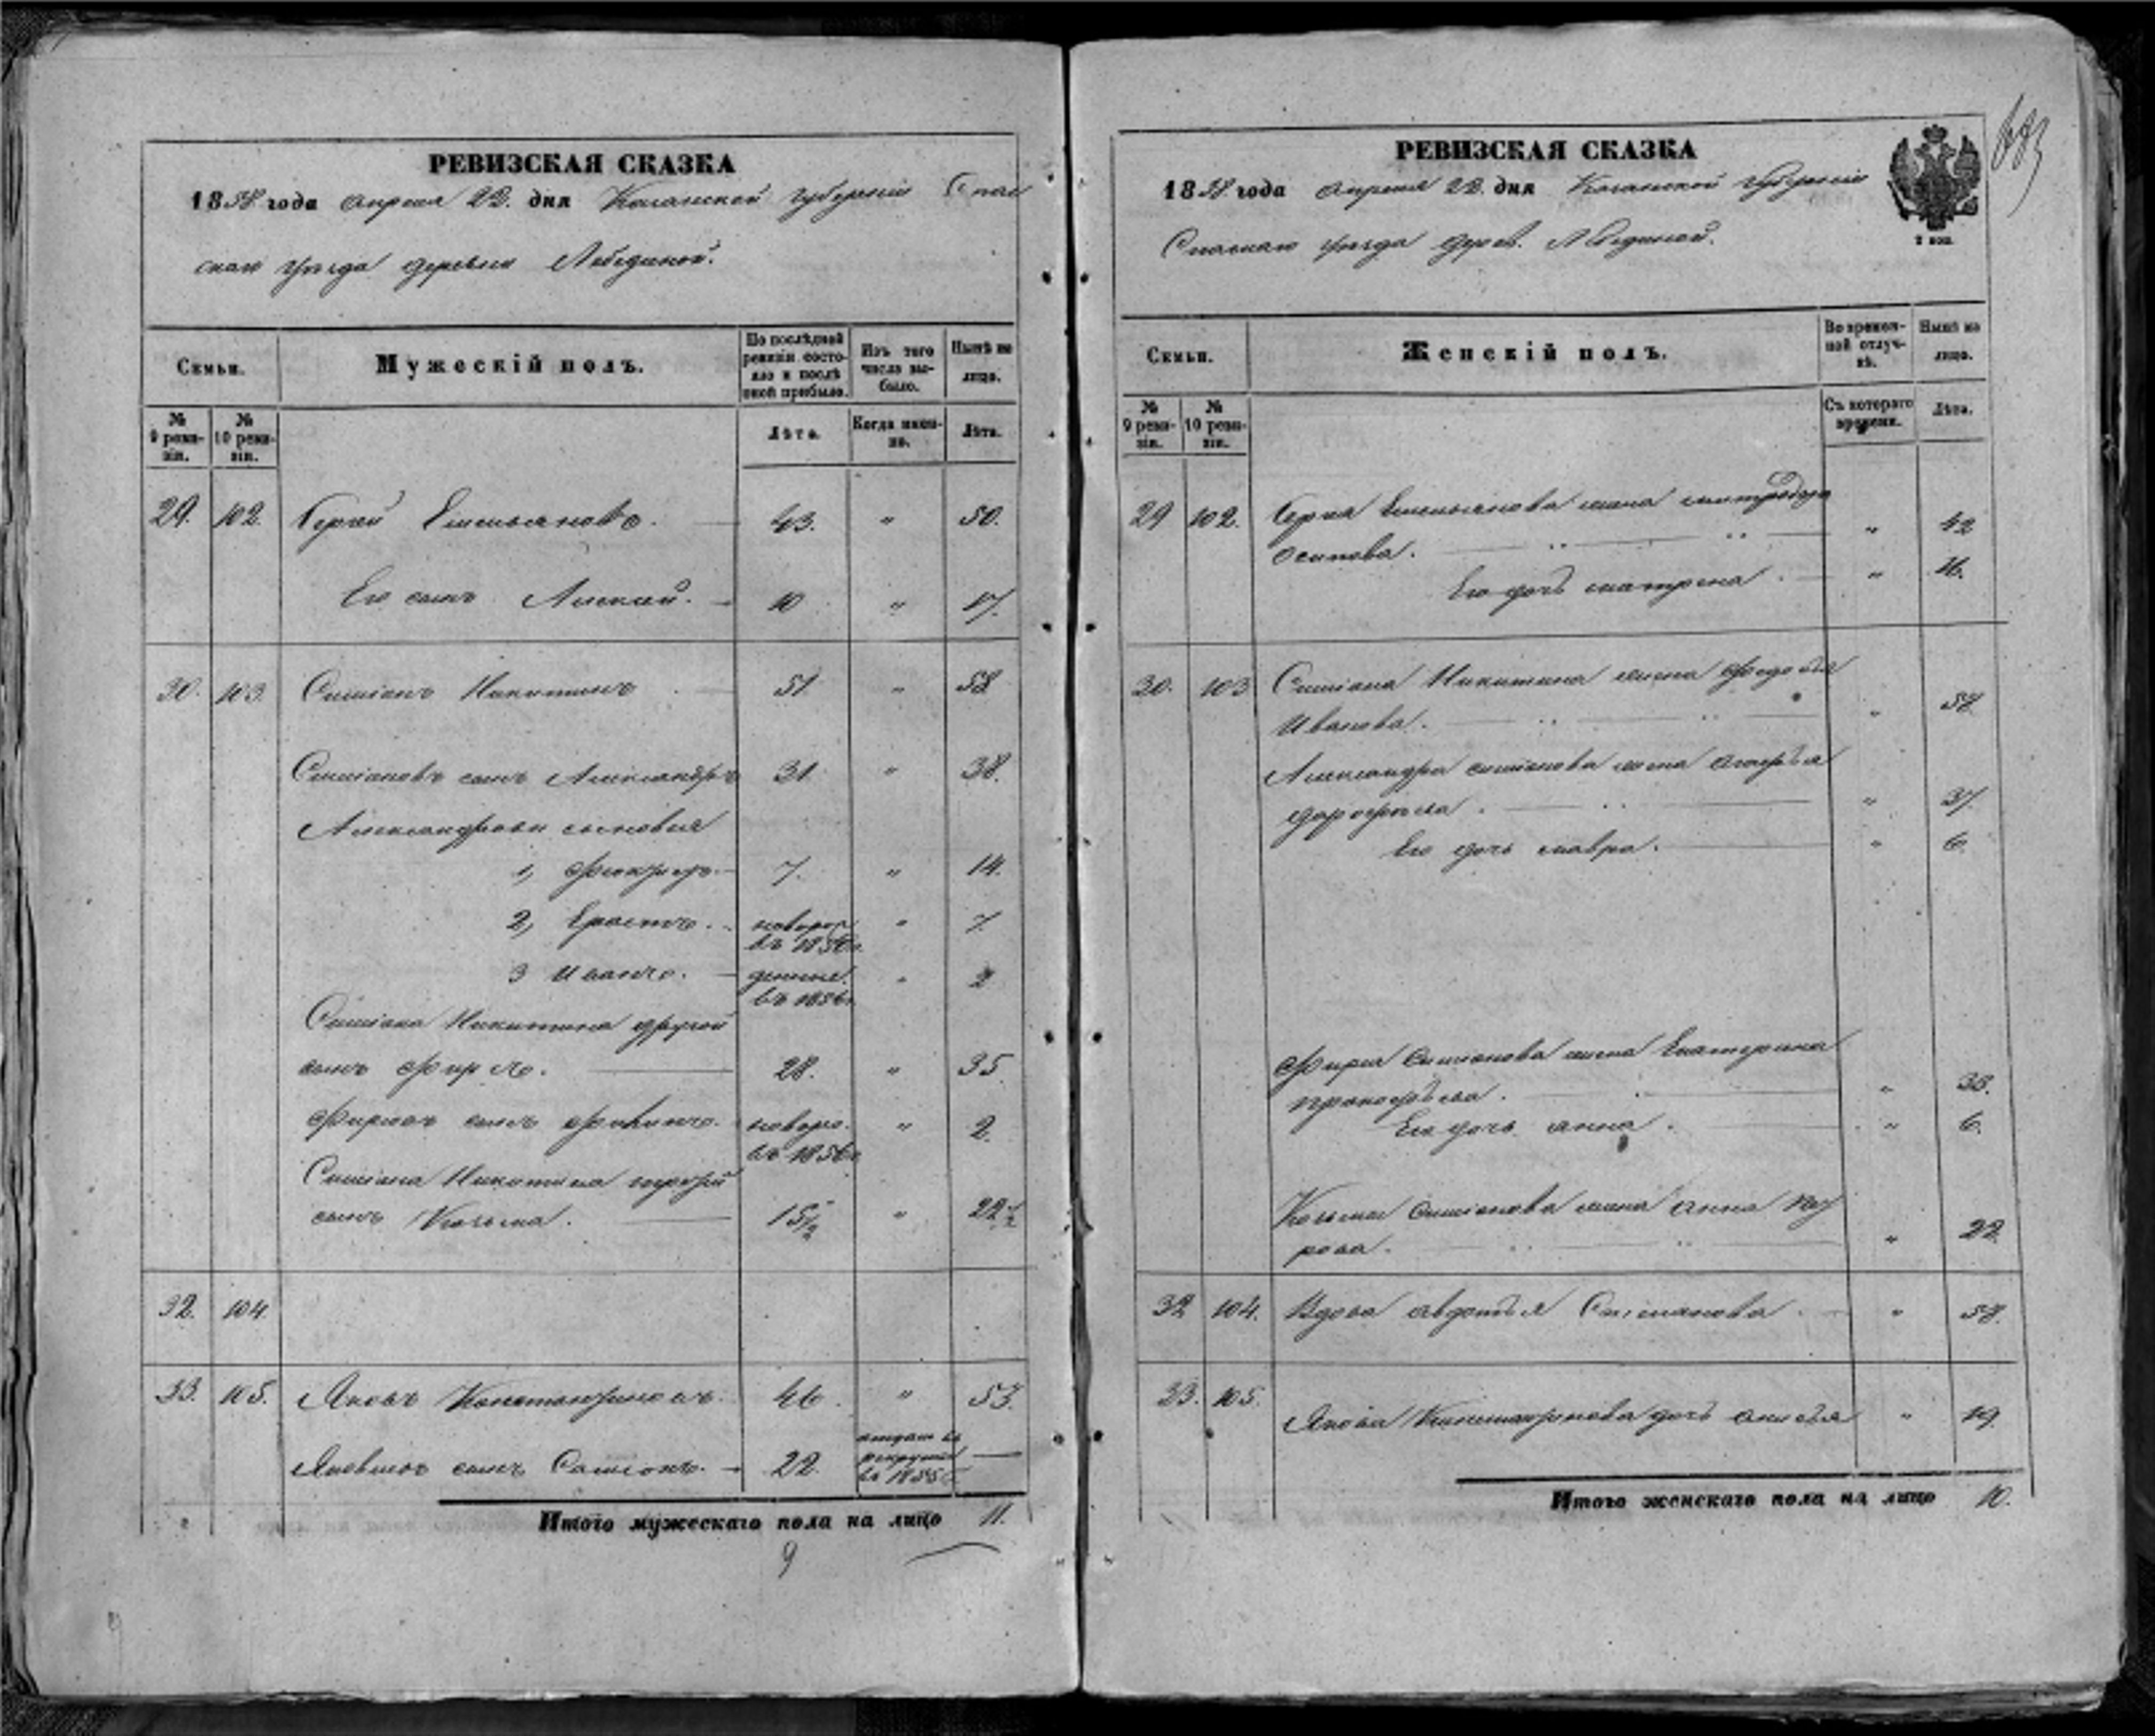 РЕВИЗСКАЯ СКАЗКА
1858 года апреля 22. дня Казанской губернии Спас
скаго уезда деревни Лебединой.
Семьи.
Мужескій полъ.
По послѣдней ревизіи состояло и послѣ оной прибыло.
Изъ того числа выбыло.
Нынѣ на лицо.
№ 9 ревизіи.
№ 10 ревизіи.
Лѣта.
Когда именно.
Лѣта.
29. 102. Сергей Емельяновъ. 43. " 50.
Его сынъ Алексей. 10 " 17.
30. 103. Симіонъ Никитинъ 51 " 58
Симіоновъ сынъ Александръ 31. " 38.
Александровы сыновья
1, 7. " 14.
2, Ерастъ. новорож " 7.
въ 1850г.
3 Иванъ. " 2
въ 1856г.
Симіона Никитина другой
сынъ Фирсъ. 28. " 35
Фирсовъ сынъ новоро. " 2.
въ 1856г
Симіона Никитина третій
сынъ Козьма. 15½ " 22½
32. 104.
33. 105. Яковъ Константиновъ. 46. " 53.
Яковлевъ сынъ Самсонъ. 22. отдан въ рекруты въ 1855г. —
Итого мужескаго пола на лицо 11.
9
РЕВИЗСКАЯ СКАЗКА
1858 года апреля 22. дня Казанской губерніи
Спаскаго уезда дерев. Лебединой.
2 коп.
Семьи.
Женскій полъ.
Во временной отлучкѣ.
Нынѣ на лицо.
№ 9 ревизіи.
№ 10 ревизіи.
Съ котораго времени.
Лѣта.
29 102. Сергея Емельянова жена
Осипова. " 42
Его дочь матрена. " 16.
30. 103 Симіона Никитина жена Федосья
Иванова. " 58
Александра симіонова жена
дорофеева. " 37.
Его дочь мавра. " 6.
Фирса Симіонова жена Екатерина
прокофьева. "
Его дочь анна. " 6.
Козьмы Симіонова жена анна
" 22.
32 104. Вдова авдотья " 58.
33. 105. Якова Константинова дочь " 19.
Итого женскаго пола на лицо 10.